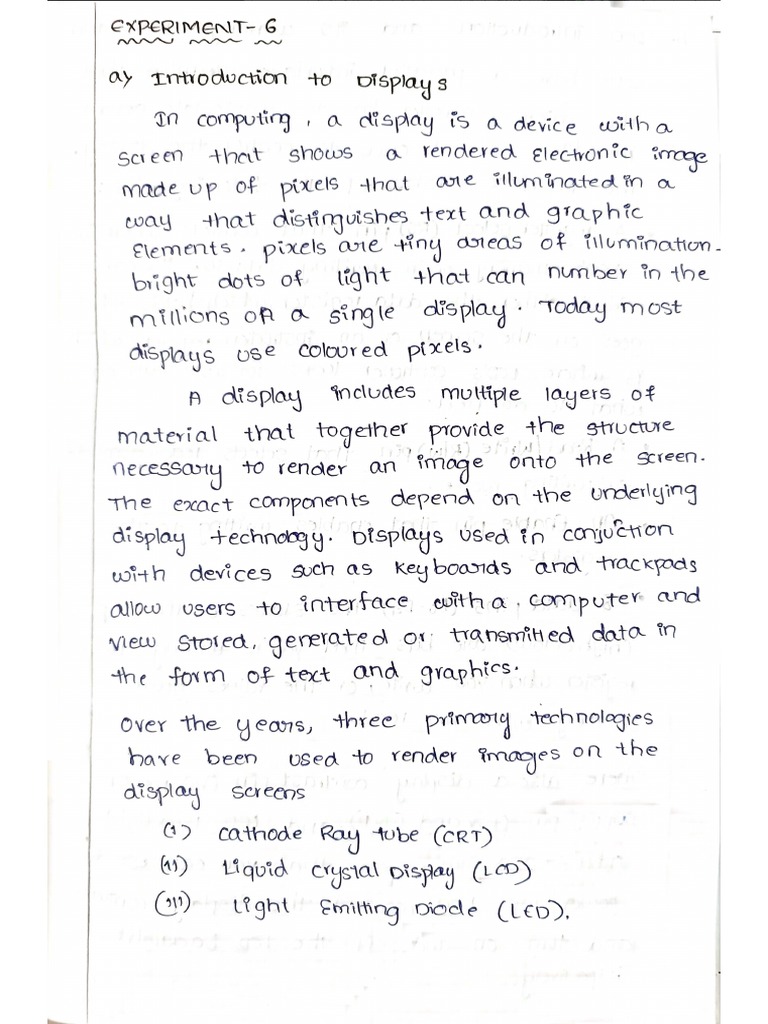 EXPERIMENT-6
a) Introduction to Displays
In computing, a display is a device with a
screen that shows a rendered Electronic image
made up of pixels that are illuminated in a
way that distinguishes text and graphic
Elements. pixels are tiny areas of illumination-
bright dots of light that can number in the
millions on a single display. Today most
displays use coloured pixels.
A display includes multiple layers of
material that together provide the structure
necessary to render an image onto the screen.
The exact components depend on the underlying
display technology. Displays used in conjuction
with devices such as keyboards and trackpads
allow users to interface with a computer and
view stored, generated or transmitted data in
the form of text and graphics.
Over the years, three primary technologies
have been used to render images on the
display screens
(i) Cathode Ray tube (CRT)
(ii) Liquid Crystal Display (LCD)
(iii) Light Emitting Diode (LED).